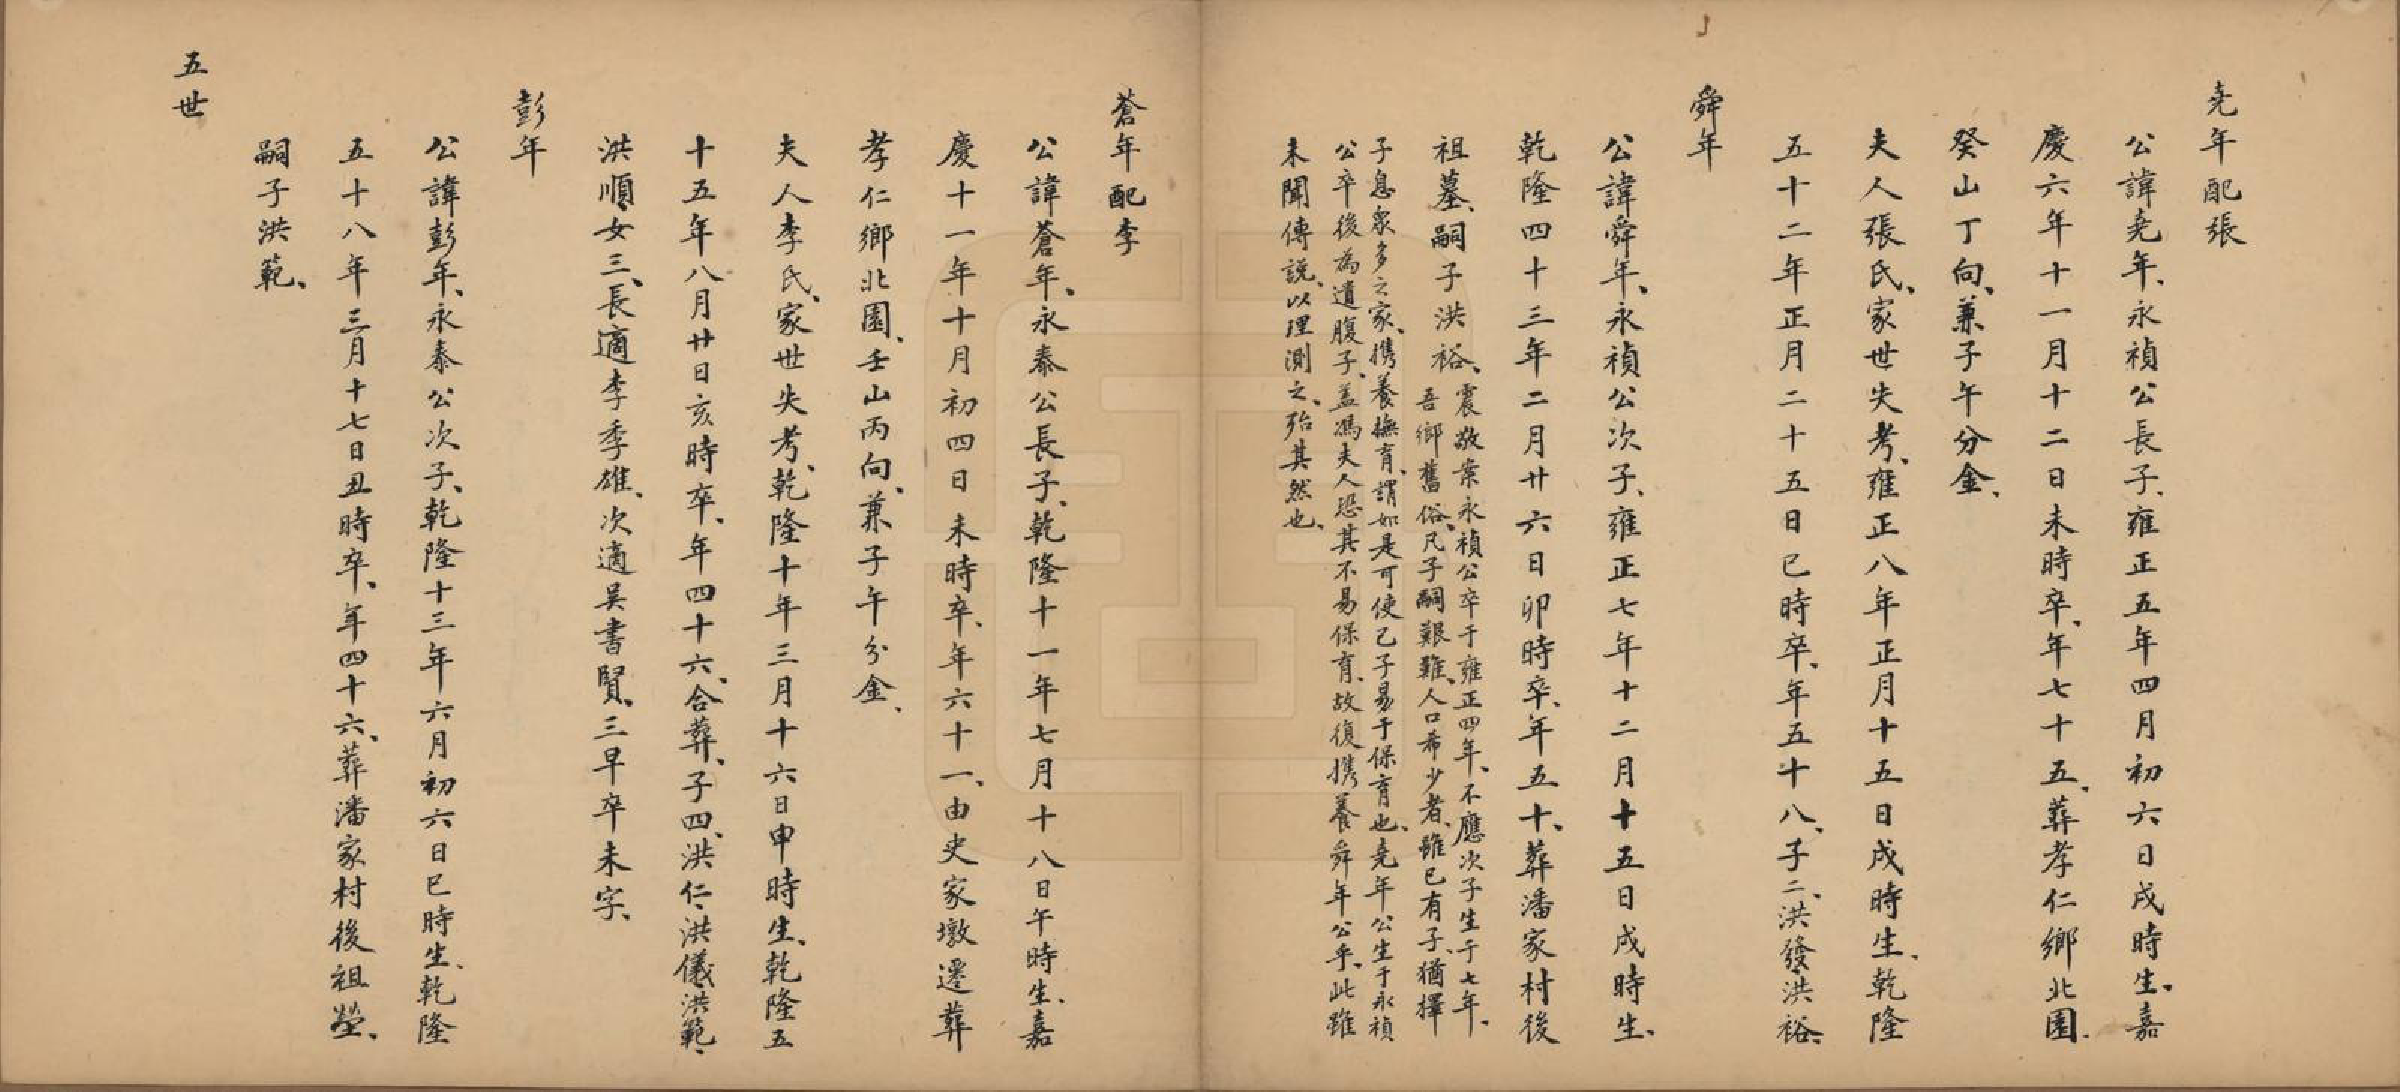 堯年配張
公諱堯年、永禎公長子、雍正五年四月初六日戌時生、嘉
慶六年十一月十二日未時卒、年七十五、葬孝仁鄉北園、
癸山丁向、兼子午分金、
夫人張氏、家世失考、雍正八年正月十五日戌時生、乾隆
五十二年正月二十五日巳時卒、年五十八、子二、洪發、洪裕、
舜年
公諱舜年、永禎公次子、雍正七年十二月十五日戌時生、
乾隆四十三年二月廿六日卯時卒、年五十、葬潘家村後
祖墓、嗣子洪裕、
震敬案永禎公卒于雍正四年、不應次子生于七年、
吾鄉舊俗、凡子嗣艱難、人口希少者、雖已有子、猶擇
子息衆多之家、携養撫育、謂如是可使己子易于保育也、堯年公生于永禎
公卒後、為遺腹子、蓋馮夫人恐其不易保育、故復携養舜年公乎、此雖
未聞傳說、以理測之、殆其然也、
蒼年配李
公諱蒼年、永泰公長子、乾隆十一年七月十八日午時生、嘉
慶十一年十月初四日未時卒、年六十一、由史家墩遷葬
孝仁鄉北園、壬山丙向、兼子午分金、
夫人李氏、家世失考、乾隆十年三月十六日申時生、乾隆五
十五年八月廿日亥時卒、年四十六、合葬、子四、洪仁、洪儀、洪範、
洪順、女三、長適李季雄、次適吳書賢、三早卒未字、
彭年
公諱彭年、永泰公次子、乾隆十三年六月初六日巳時生、乾隆
五十八年三月十七日丑時卒、年四十六、葬潘家村後祖塋、
嗣子洪範、
五世